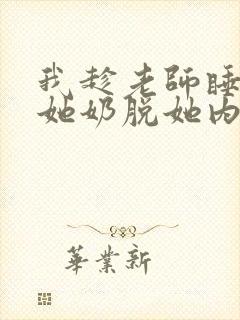 我趁老師睡
她奶脱她内
華業新